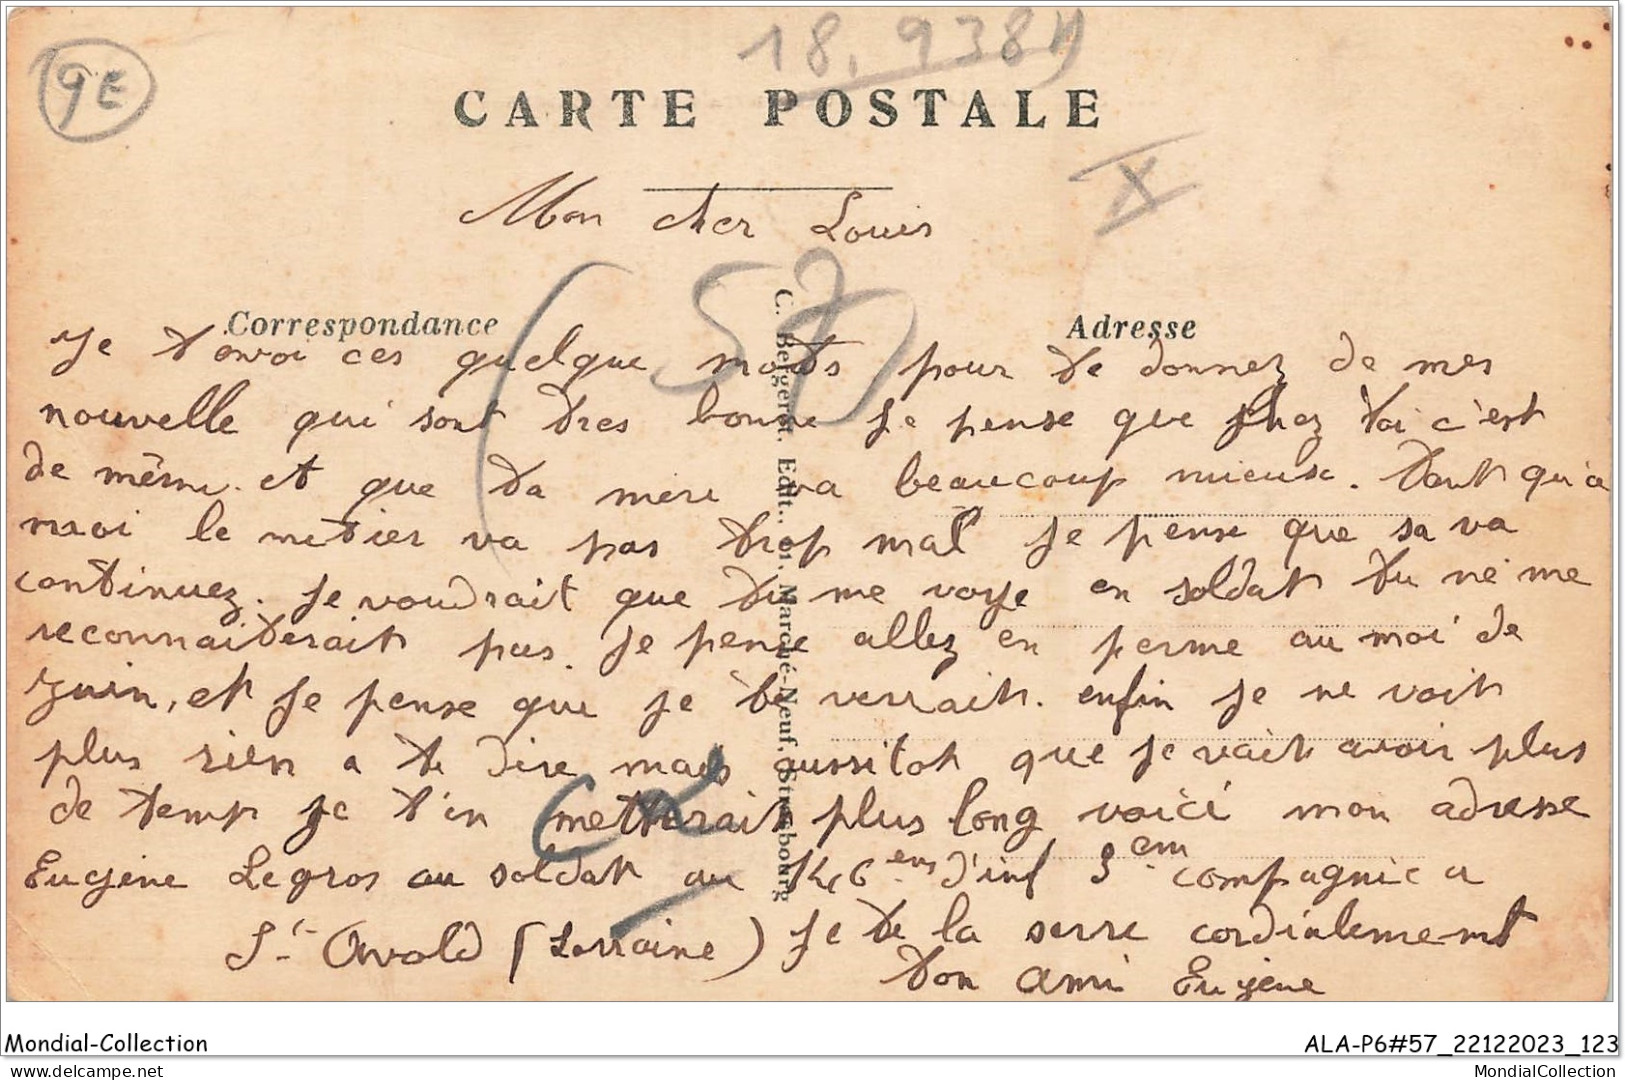 9E
18.938
CARTE POSTALE
X
Mon cher Louis
(57)
Correspondance
Adresse
C. Bergeret, Edit., Marché-Neuf, Strasbourg
Je t envoi ces quelque mots pour te donnez de mes
nouvelle qui sont tres bonne je pense que chez toi c'est
de même. et que ta mere va beaucoup mieuse. Tant qu'a
moi le metier va pas trop mal je pense que sa va
continuez. Je voudrait que tu me voye en soldat tu ne me
reconnaiterait pas. Je pense allez en perme au moi de
Juin, et je pense que je te verrait. enfin je ne voit
plus rien a te dire mais aussitot que je vait avoir plus
de temp je t'en metterait plus long voici mon adresse
Eugene Legros au soldat au d'inf 3em compagnie a
St Avold (Lorraine) Je te la serre cordialement
Ton ami Eugene
Mondial-Collection
ALA-P6#57_22122023_123
delcampe.net
MondialCollection